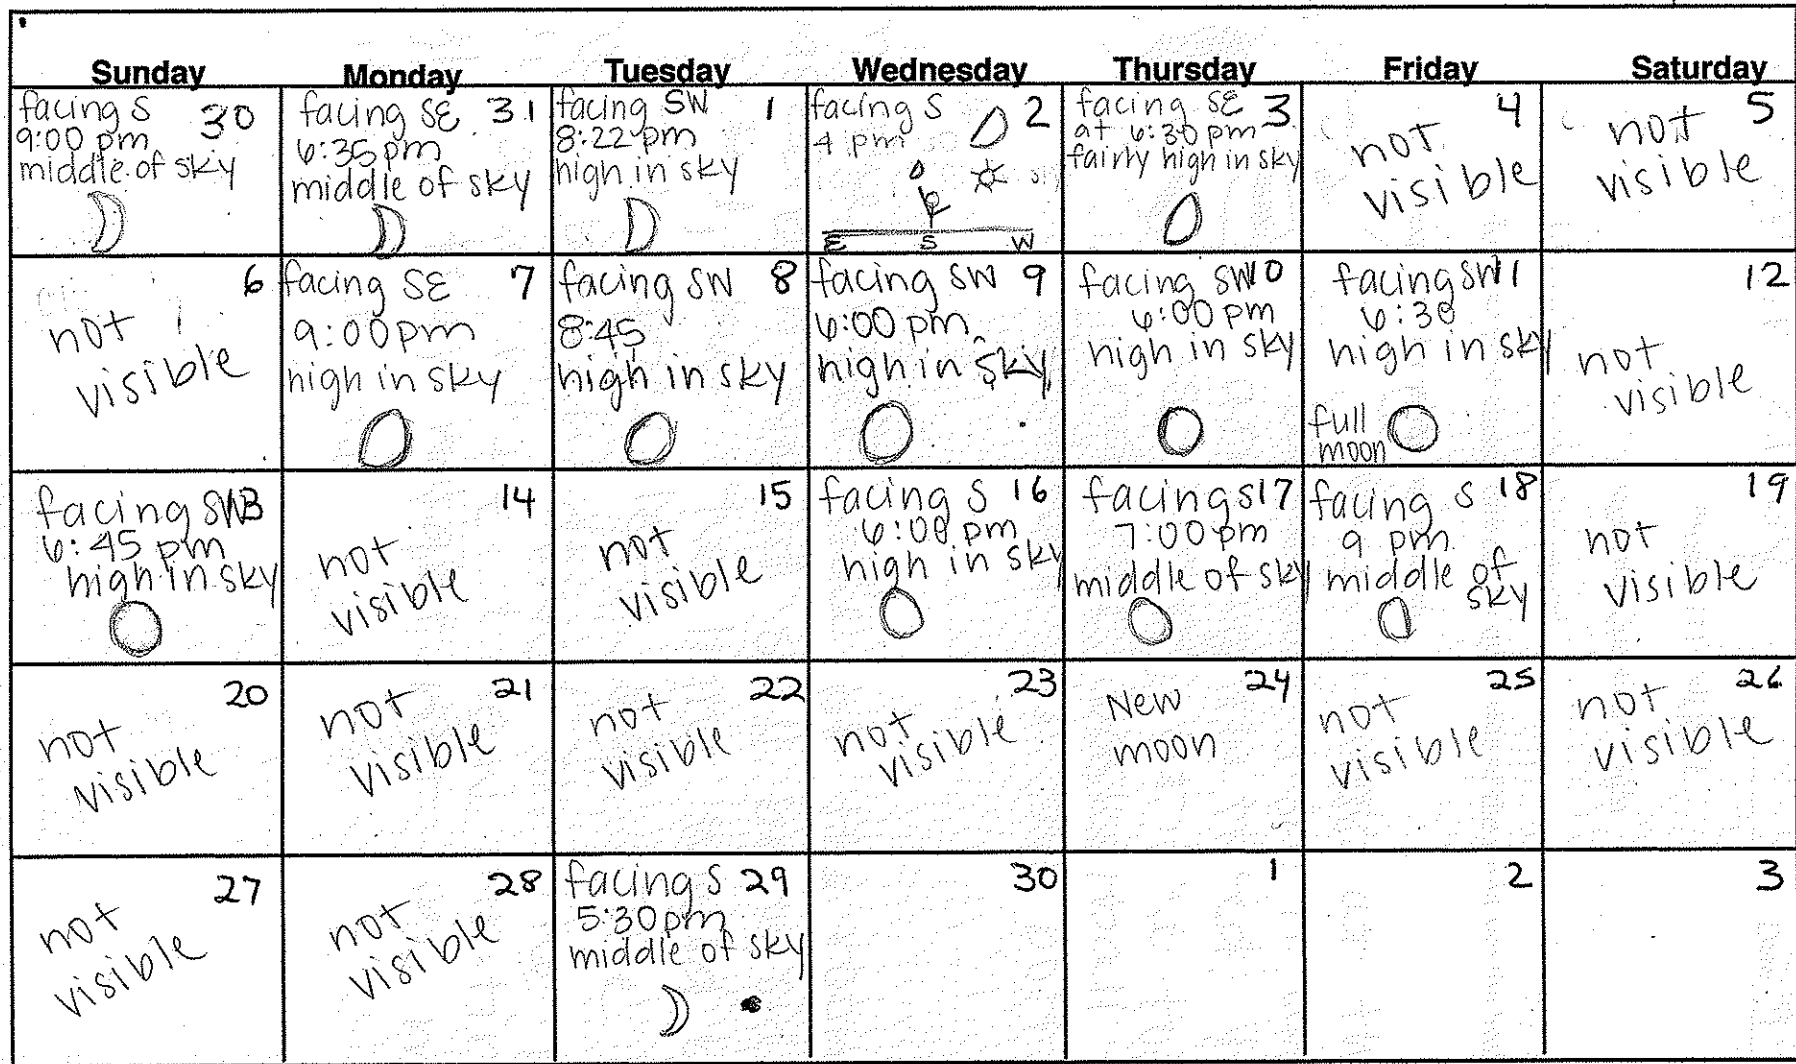 Sunday Monday Tuesday Wednesday Thursday Friday Saturday
facing S 30
9:00 pm
middle of sky
facing SE 31
6:35pm
middle of sky
facing SW 1
8:22pm
high in sky
facing S 2
4 pm
E S W
facing SE 3
at 6:30 pm
fairly high in sky
4
not
visible
5
not
visible
6
not
visible
facing SE 7
9:00pm
high in sky
facing SW 8
8:45
high in sky
facing SW 9
6:00 pm
high in sky
facing SW 10
6:00 pm
high in sky
facing SW 11
6:30
high in sky
full
moon
12
not
visible
facing SW 13
6:45 pm
high in sky
14
not
visible
15
not
visible
facing S 16
6:00 pm
high in sky
facing S 17
7:00 pm
middle of sky
facing S 18
9 pm
middle of
sky
19
not
visible
20
not
visible
21
not
visible
22
not
visible
23
not
visible
24
New
moon
25
not
visible
26
not
visible
27
not
visible
28
not
visible
facing S 29
5:30pm
middle of sky
30
1
2
3